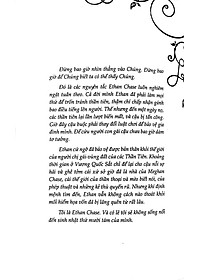 Đừng bao giờ nhìn thẳng vào Chúng. Đừng bao
giờ để Chúng biết ta có thể thấy Chúng.
Đó là các nguyên tắc Ethan Chase luôn nghiêm
ngặt tuân theo. Cả đời mình Ethan đã phải làm mọi
thứ để trốn tránh thần tiên, thậm chí chấp nhận gánh
bao điều oan ức tủi hổ. Thế nhưng đến một ngày nọ,
các thần tiên lại lần lượt biến mất, và cậu bị tấn công.
Giờ đây cậu buộc phải thay đổi luật chơi để bảo vệ gia
đình mình. Để cứu người con gái cậu chưa bao giờ dám
mơ tưởng.
Ethan cứ ngỡ đã bảo vệ được bản thân khỏi thế giới
của người chị gái vùng đất của các Thần Tiên. Khoảng
thời gian ở Vương Quốc Sắt chỉ để lại cho cậu nỗi sợ
hãi và ghê tởm cái xứ sở giờ đã là nhà của Meghan
Chase, cái thế giới của thần thoại và mèo biết nói, của
phép thuật và những kẻ thù quyến rũ. Nhưng khi định
mệnh tìm đến, Ethan vẫn không cách nào thoát khỏi
mối hiểm họa vốn đã bị lãng quên từ rất lâu.
Tôi là Ethan Chase. Và có lẽ tôi sẽ không sống nổi
đến sinh nhật thứ mười tám của mình.